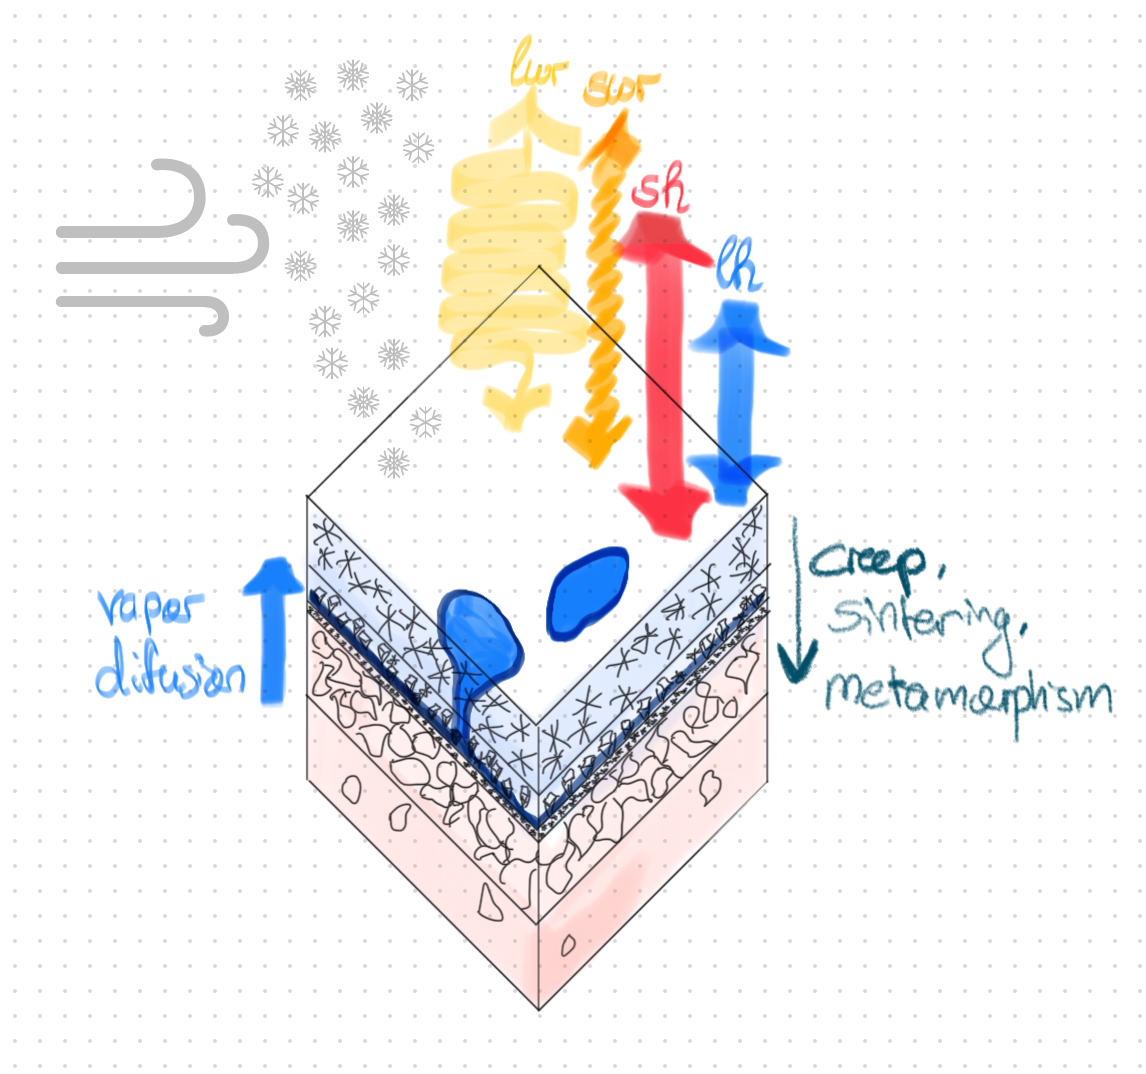 lwr
swr
sh
lh
vapor
difusion
creep,
sintering,
metamorphism